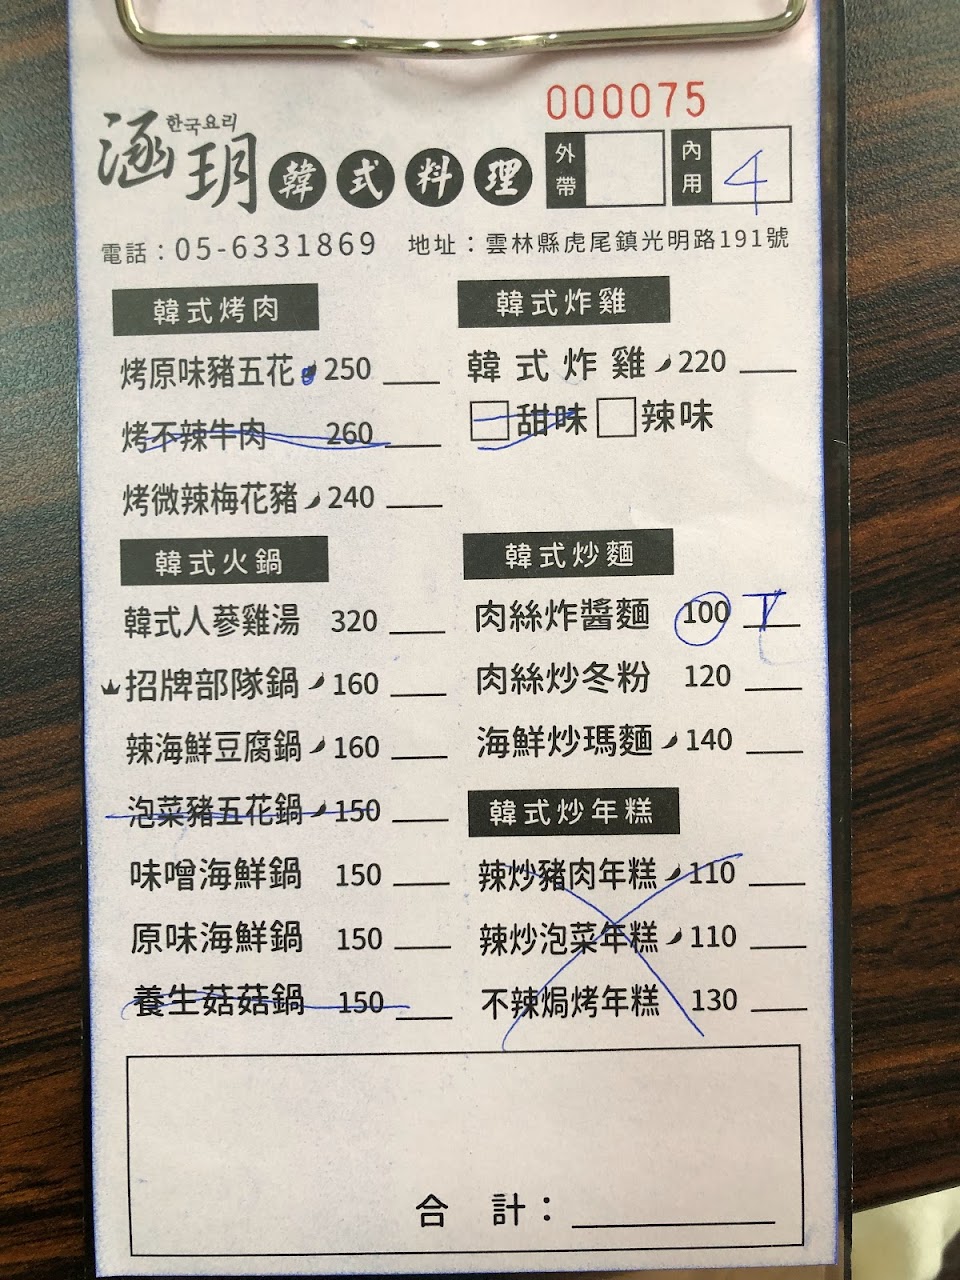 000075
한국요리
涵玥韓式料理
外帶
內用 4
電話：05-6331869 地址：雲林縣虎尾鎮光明路191號
韓式烤肉
烤原味豬五花 250
烤不辣牛肉 260
烤微辣梅花豬 240
韓式火鍋
韓式人蔘雞湯 320
招牌部隊鍋 160
辣海鮮豆腐鍋 160
泡菜豬五花鍋 150
味噌海鮮鍋 150
原味海鮮鍋 150
養生菇菇鍋 150
韓式炸雞
韓式炸雞 220
甜味 辣味
韓式炒麵
肉絲炸醬麵 100
肉絲炒冬粉 120
海鮮炒瑪麵 140
韓式炒年糕
辣炒豬肉年糕 110
辣炒泡菜年糕 110
不辣焗烤年糕 130
合計：